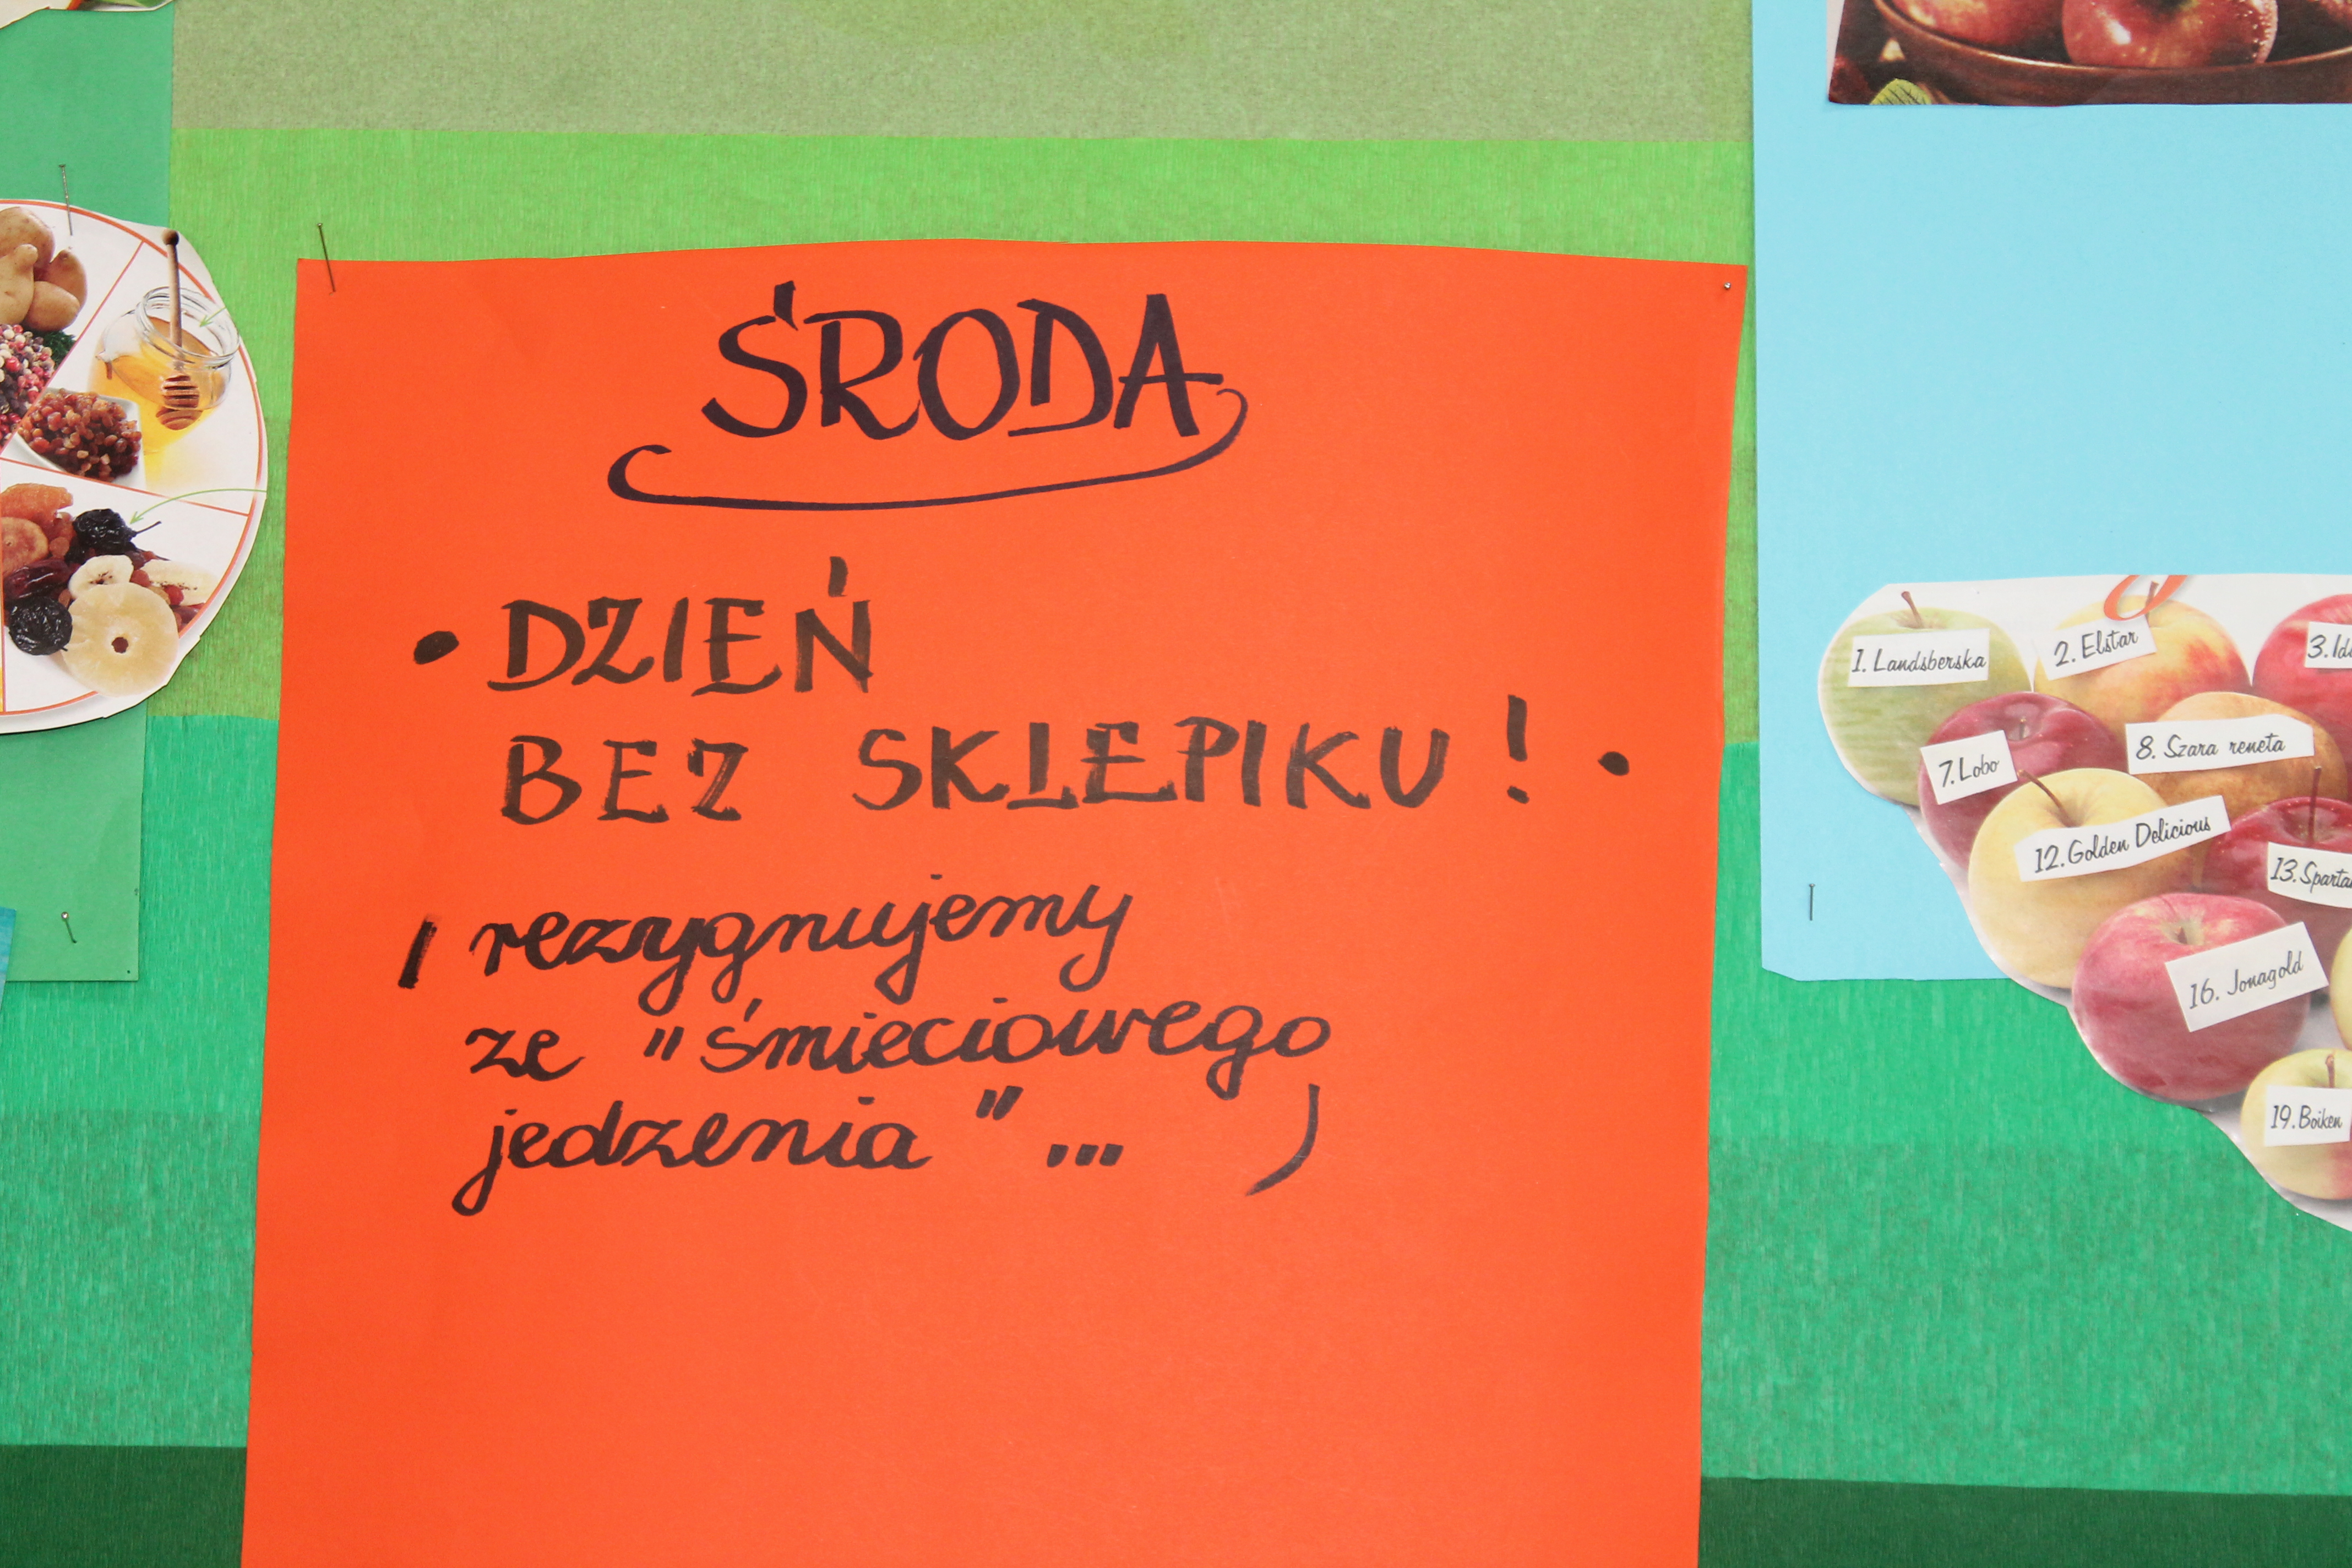 ŚRODA
• DZIEŃ
BEZ SKLEPIKU! •
( rezygnujemy
ze "śmieciowego
jedzenia" ... )
1. Landsberska
2. Elstar
7. Lobo
8. Szara reneta
12. Golden Delicious
16. Jonagold
19. Boiken